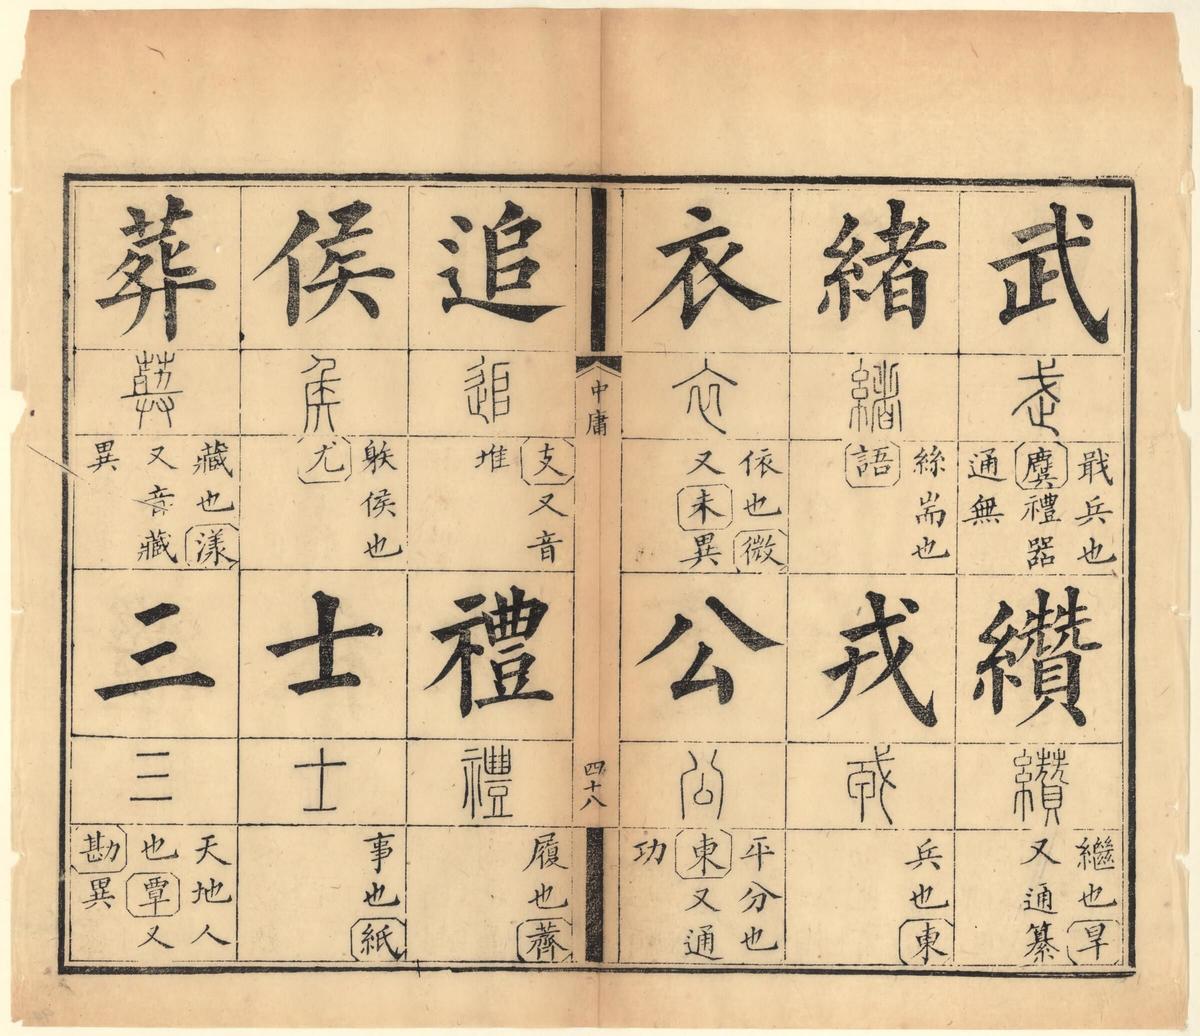 武
武
戢兵也
麌禮器
通無
纘
纘
繼也旱
又通纂
緒
緒
絲耑也
語
戎
戎
兵也東
衣
衣
依也微
又未異
公
公
平分也
東又通
功
中庸
四十八
追
追
支又音
堆
禮
禮
履也薺
侯
侯
䠶侯也
尤
士
士
事也紙
葬
葬
藏也漾
又音藏
異
三
三
天地人
也覃又
勘異